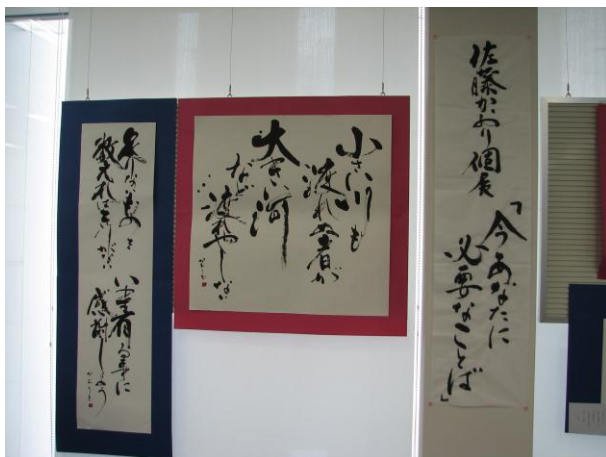 佐藤かおり個展
「今あなたに
必要なことば」
小さい川も
渡れぬ者が
大きい河
など渡れやしない
足りないものを
数えればきりがない
いま有る事に
感謝しよう